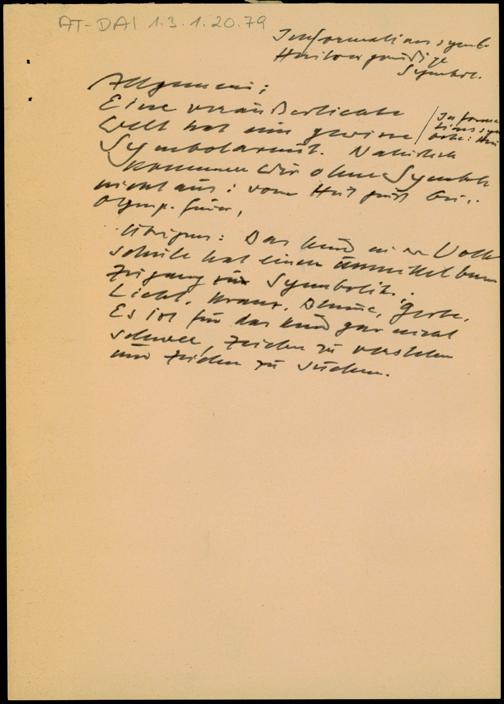 AT-DAI 1.3.1.20.79
Informationssymb
Symbol.
Allgemein:
Eine veräußerlichte
Informa
tionssym
Welt hat eine gewisse
Symbolarmut. Natürlich
kommen wir ohne Symbole
nicht aus: vom Hut
Olymp. Feuer,
Übrigens: Das Kind in der Volks
schule hat einen unmittelbaren
Zugang zur Symbolik.
Licht, Kranz, Blume, Gerbe,
Es ist für das Kind gar nicht
schwer, Zeichen zu verstehen
und Zeichen zu suchen.